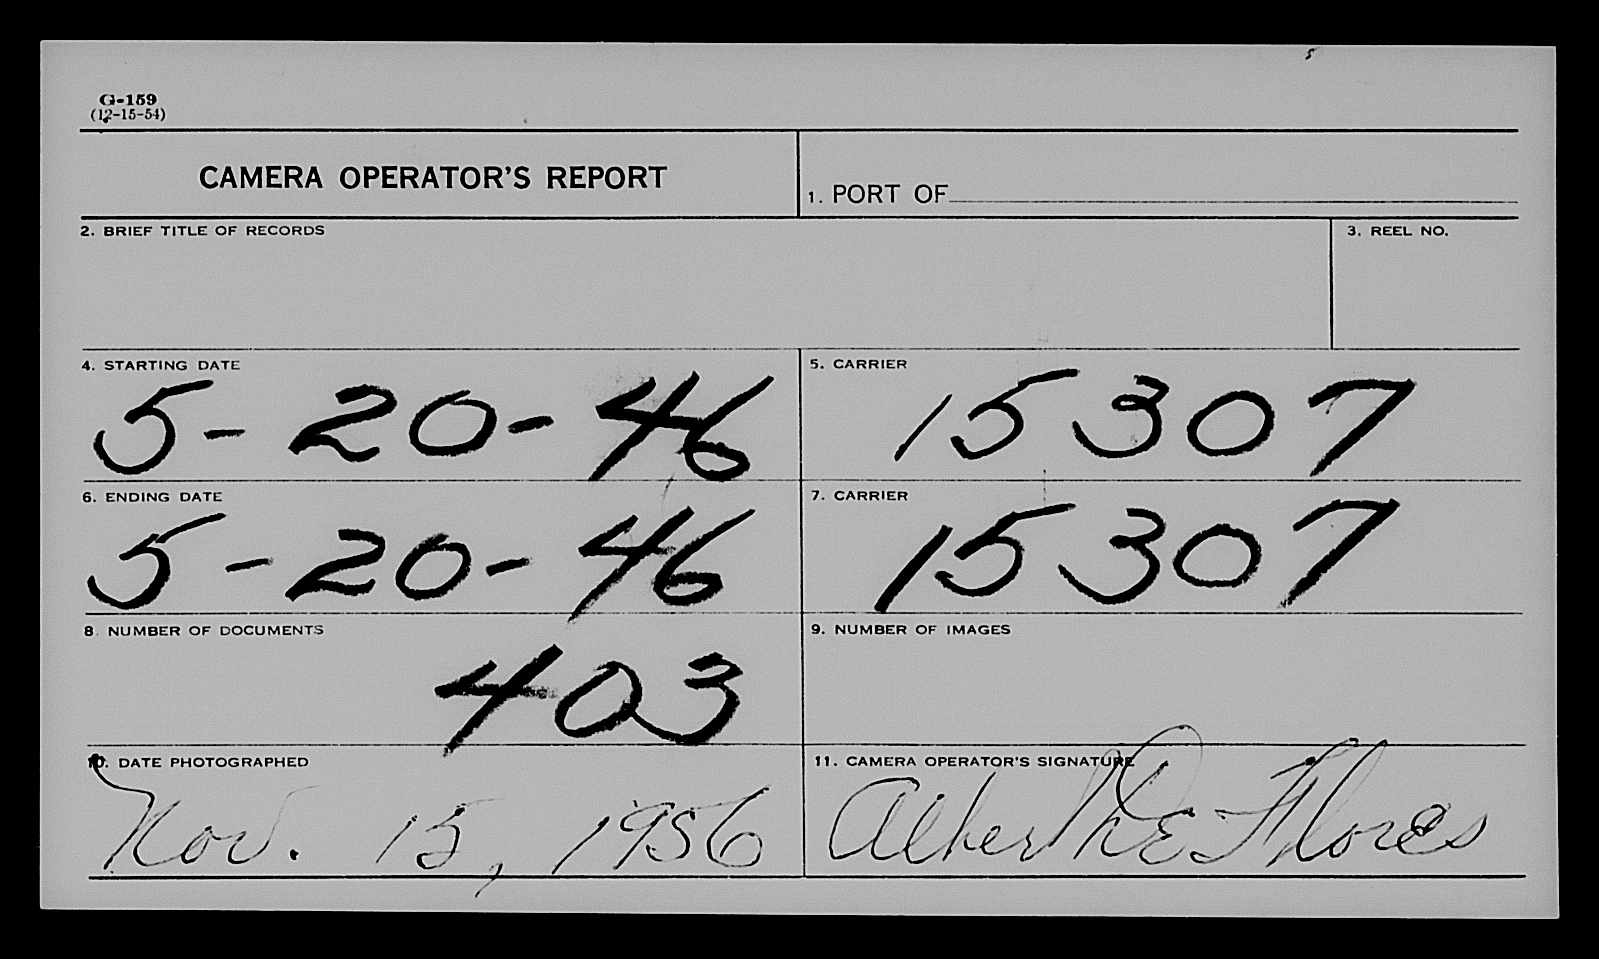 G-159
(12-15-54)
CAMERA OPERATOR'S REPORT
1. PORT OF
2. BRIEF TITLE OF RECORDS
3. REEL NO.
4. STARTING DATE
5. CARRIER
5-20-46
15307
6. ENDING DATE
7. CARRIER
5-20-46
15307
8. NUMBER OF DOCUMENTS
9. NUMBER OF IMAGES
403
10. DATE PHOTOGRAPHED
11. CAMERA OPERATOR'S SIGNATURE
Nov. 15, 1956
Albert De Flores